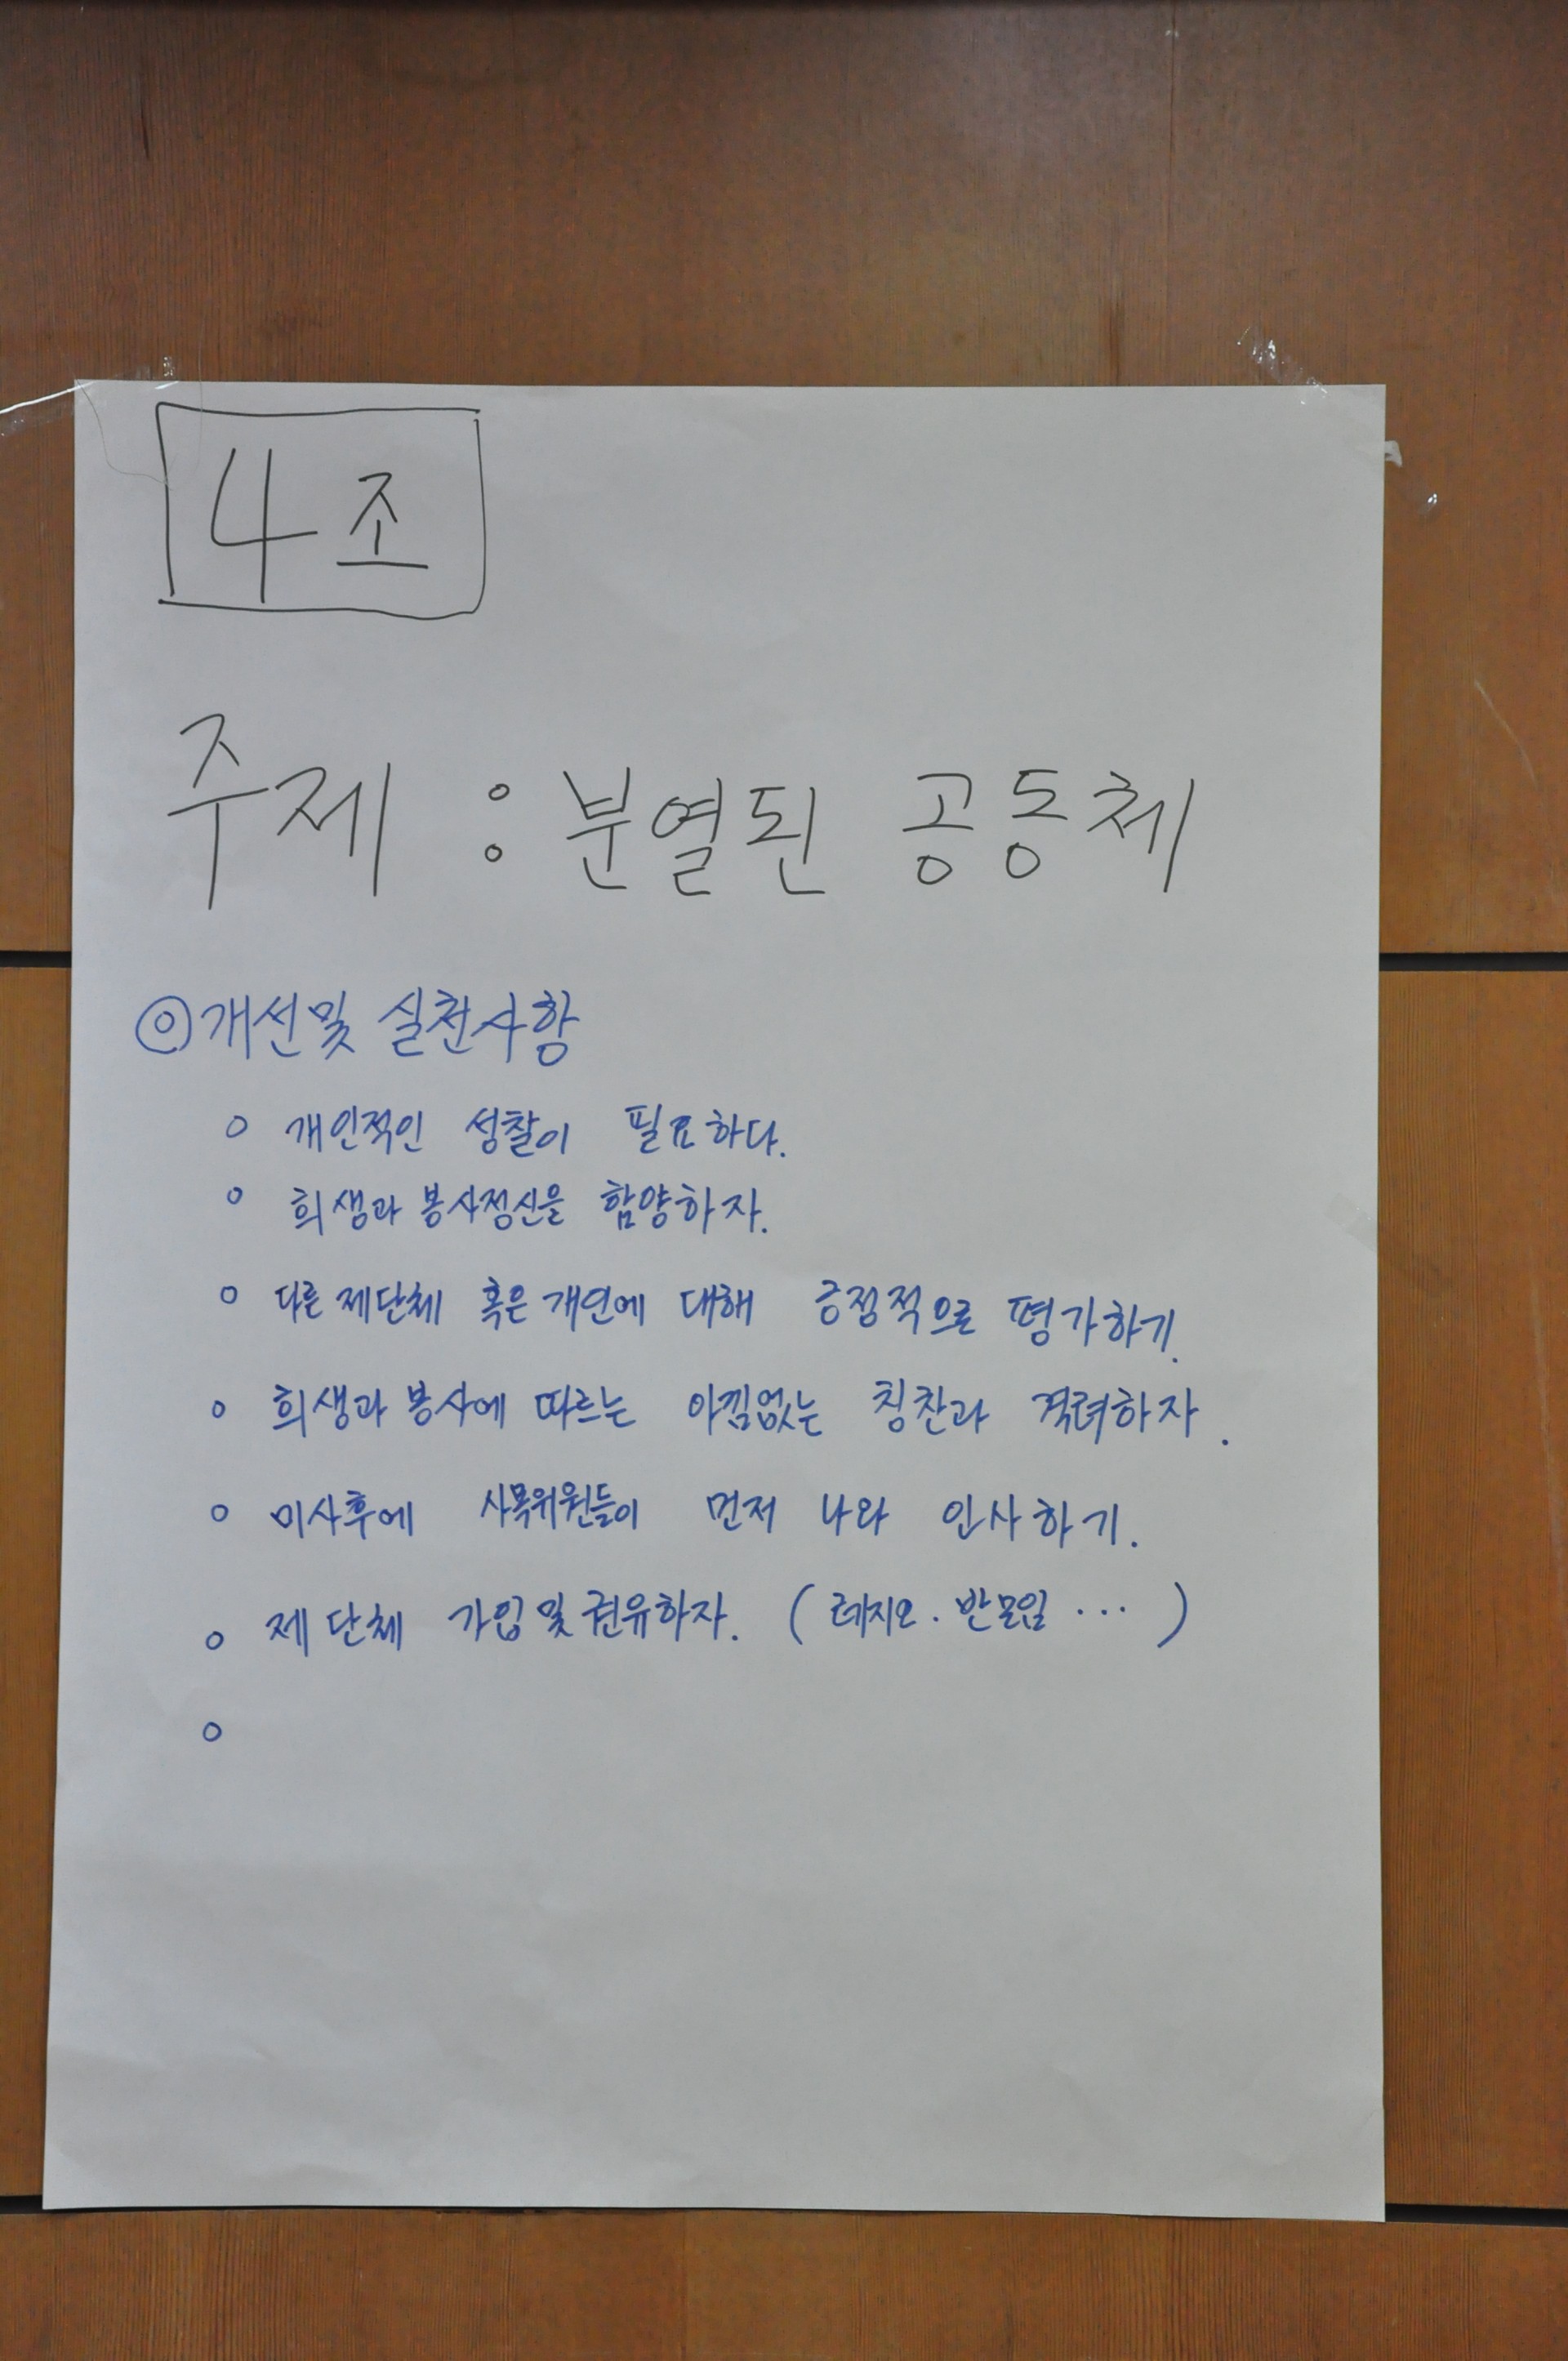 4조
주제 : 분열된 공동체
◎개선및 실천사항
○ 개인적인 성찰이 필요하다.
○ 희생과 봉사정신을 함양하자.
○ 다른 제단체 혹은 개인에 대해 긍정적으로 평가하기.
○ 희생과 봉사에 따르는 아낌없는 칭찬과 격려하자.
○ 미사후에 사목위원들이 먼저 나와 인사하기.
○ 제단체 가입 및 권유하자. (레지오. 반모임 ...)
○